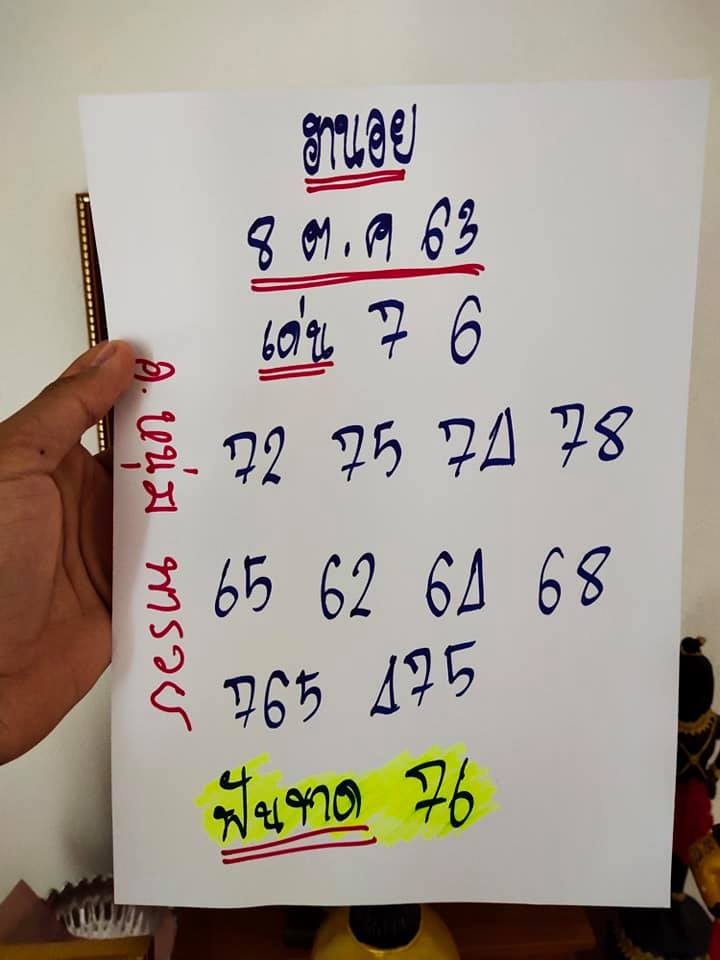 ฮานอย
8 ต.ค 63
เด่น 7 6
72 75 74 78
65 62 64 68
765 475
ฟันขาด 76
อ.หนุ่ม พารวย